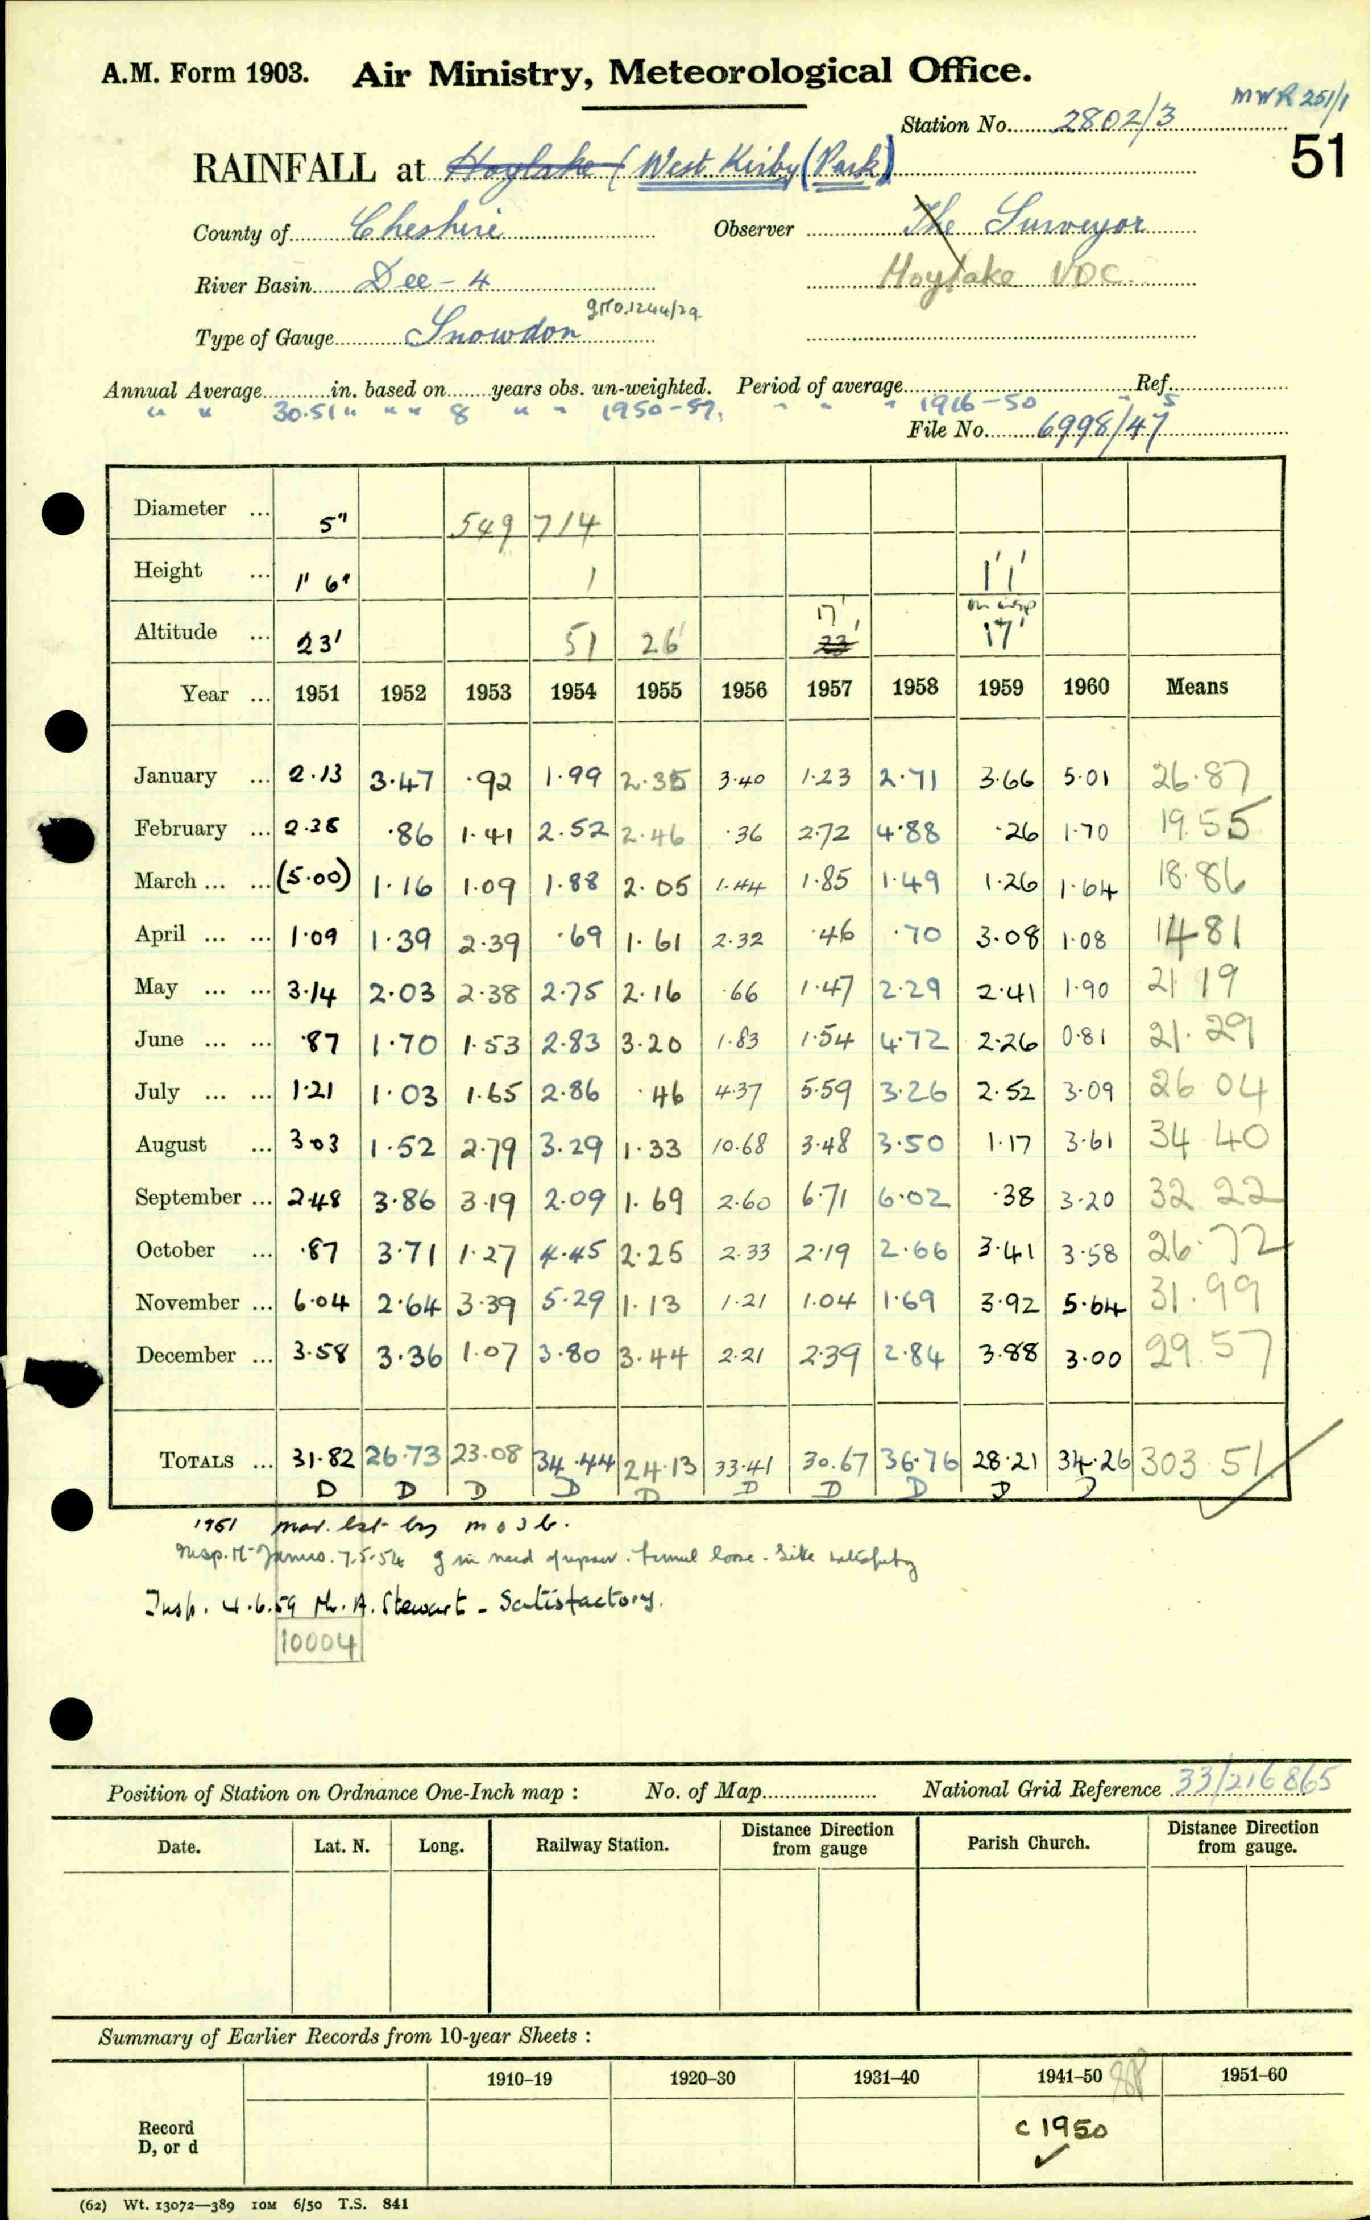 MWR 251/1
A.M. Form 1903. Air Ministry, Meteorological Office.
Station No. 2802/3
51
RAINFALL at Hoylake (West Kirby (Park)
County of Cheshire Observer The Surveyor
River Basin Dee - 4 Hoylake UDC
Type of Gauge Snowdon
Annual Average in. based on years obs. un-weighted. Period of average Ref.
" " 30.51 " " " 8 " " 1950-57, " " " 1916-50 " 5
File No. 6998/47
Diameter ... 5" 549 714
Height ... 1' 6" 1 1' 1'
Altitude ... 23' 51 26' 17' 23' on insp 17'
Year ... 1951 1952 1953 1954 1955 1956 1957 1958 1959 1960 Means
January ... 2.13 3.47 .92 1.99 2.35 3.40 1.23 2.71 3.66 5.01 26.87
February ... 2.38 .86 1.41 2.52 2.46 .36 2.72 4.88 .26 1.70 19.55
March ... ... (5.00) 1.16 1.09 1.88 2.05 1.44 1.85 1.49 1.26 1.64 18.86
April ... ... 1.09 1.39 2.39 .69 1.61 2.32 .46 .70 3.08 1.08 14 81
May ... ... 3.14 2.03 2.38 2.75 2.16 .66 1.47 2.29 2.41 1.90 21 19
June ... ... .87 1.70 1.53 2.83 3.20 1.83 1.54 4.72 2.26 0.81 21.29
July ... ... 1.21 1.03 1.65 2.86 .46 4.37 5.59 3.26 2.52 3.09 26 04
August ... 3.03 1.52 2.79 3.29 1.33 10.68 3.48 3.50 1.17 3.61 34 40
September ... 2.48 3.86 3.19 2.09 1.69 2.60 6.71 6.02 .38 3.20 32 22
October ... .87 3.71 1.27 4.45 2.25 2.33 2.19 2.66 3.41 3.58 26.72
November ... 6.04 2.64 3.39 5.29 1.13 1.21 1.04 1.69 3.92 5.64 31.99
December ... 3.58 3.36 1.07 3.80 3.44 2.21 2.39 2.84 3.88 3.00 29.57
TOTALS ... 31.82 26.73 23.08 34.44 24.13 33.41 30.67 36.76 28.21 34.26 303 51
D D D D D D D D D D
1951 mar. est. by m o 3 b.
Insp. Mr James. 7.5.54 g in need of repair. funnel loose. Site satisfactory
Insp. 4.6.59 Mr. A. Stewart - Satisfactory.
10004
Position of Station on Ordnance One-Inch map : No. of Map National Grid Reference 33/216865
Date. Lat. N. Long. Railway Station. Distance Direction from gauge Parish Church. Distance Direction from gauge.
Summary of Earlier Records from 10-year Sheets :
1910–19 1920–30 1931–40 1941–50 1951–60
Record
D, or d
c 1950
(62) Wt. 13072—389 10M 6/50 T.S. 841